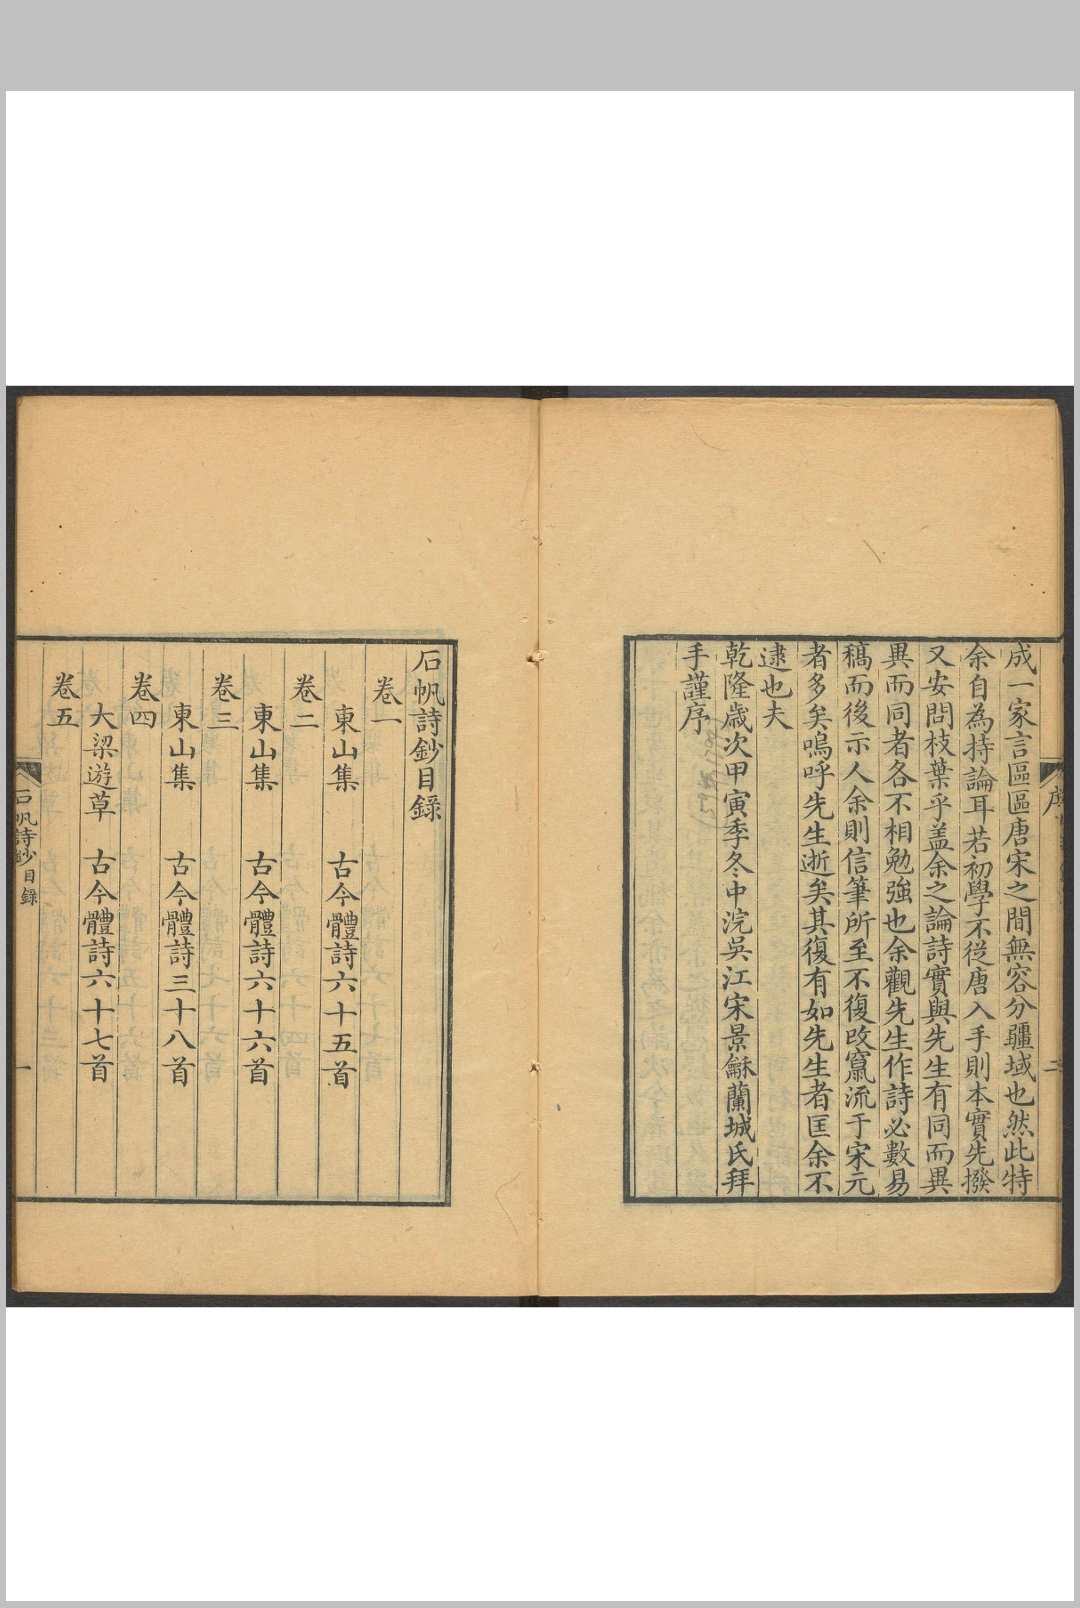 成一家言區區唐宋之間無容分疆域也然此特
余自為持論耳若初學不從唐入手則本實先撥
又安問枝葉乎盖余之論詩實與先生有同而異
異而同者各不相勉強也余觀先生作詩必數易
稿而後示人余則信筆所至不復改竄流于宋元
者多矣嗚呼先生逝矣其復有如先生者匡余不
逮也夫
乾隆歲次甲寅季冬中浣吳江宋景龢蘭城氏拜
手謹序
序
二
石帆詩鈔目錄
卷一
東山集 古今體詩六十五首
卷二
東山集 古今體詩六十六首
卷三
東山集 古今體詩三十八首
卷四
大梁遊草 古今體詩六十七首
卷五
石帆詩鈔目錄
一